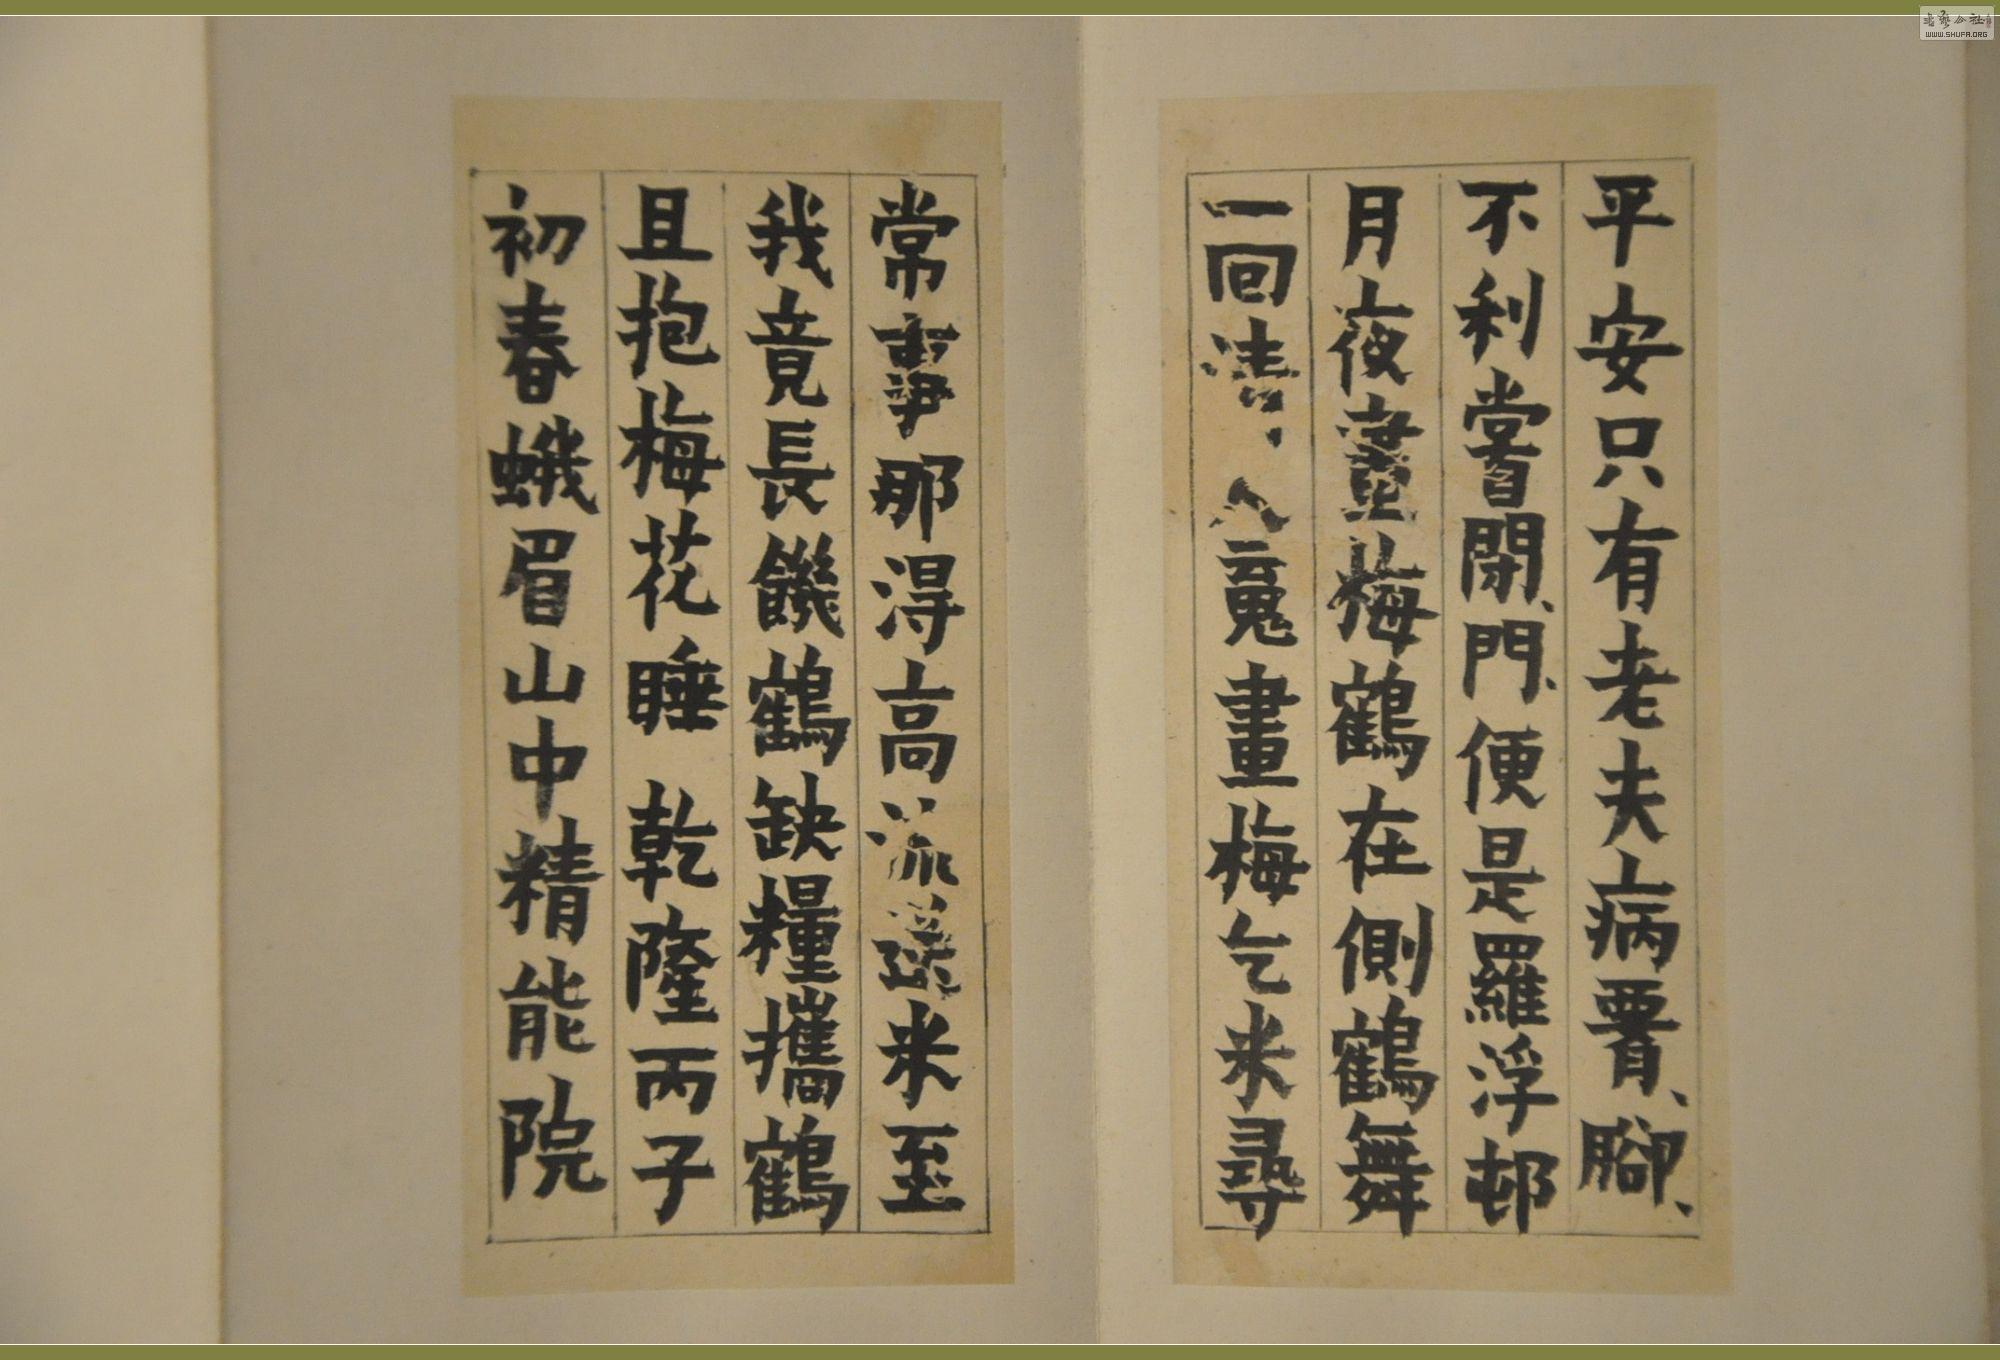 平安只有老夫病覉腳
不利嘗閉門便是羅浮邨
月夜畫梅鶴在側鶴舞
一回清人魂畫梅乞米尋
常事那得高流送米至
我竟長饑鶴缺糧攜鶴
且抱梅花睡 乾隆丙子
初春蛾眉山中精能院
WWW.SHUFA.ORG